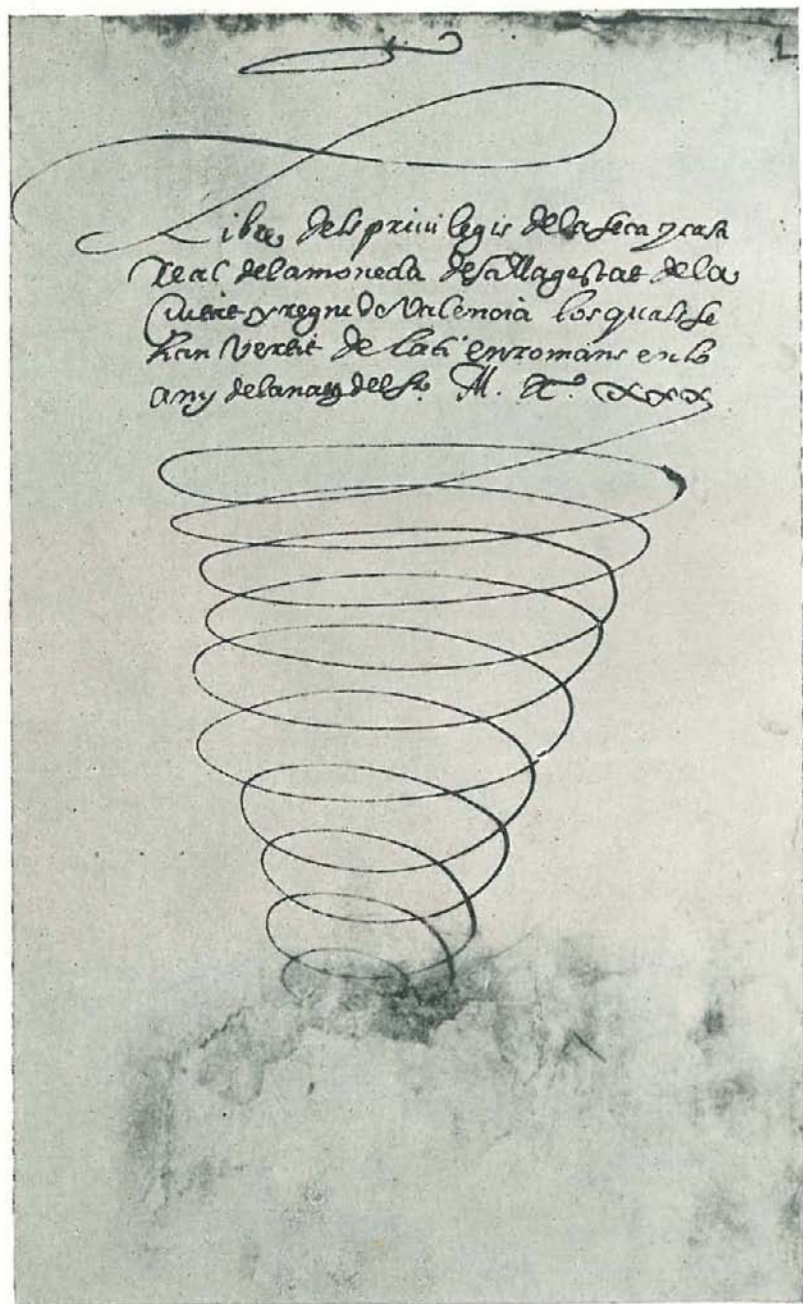 Libre dels priuilegis de la seca y casa
Real de la moneda de sa Magestat de la
Ciutat y regne de Valencia los quals se
han Vertit de lati en romans en lo
any de la naty del sr. M. xxx